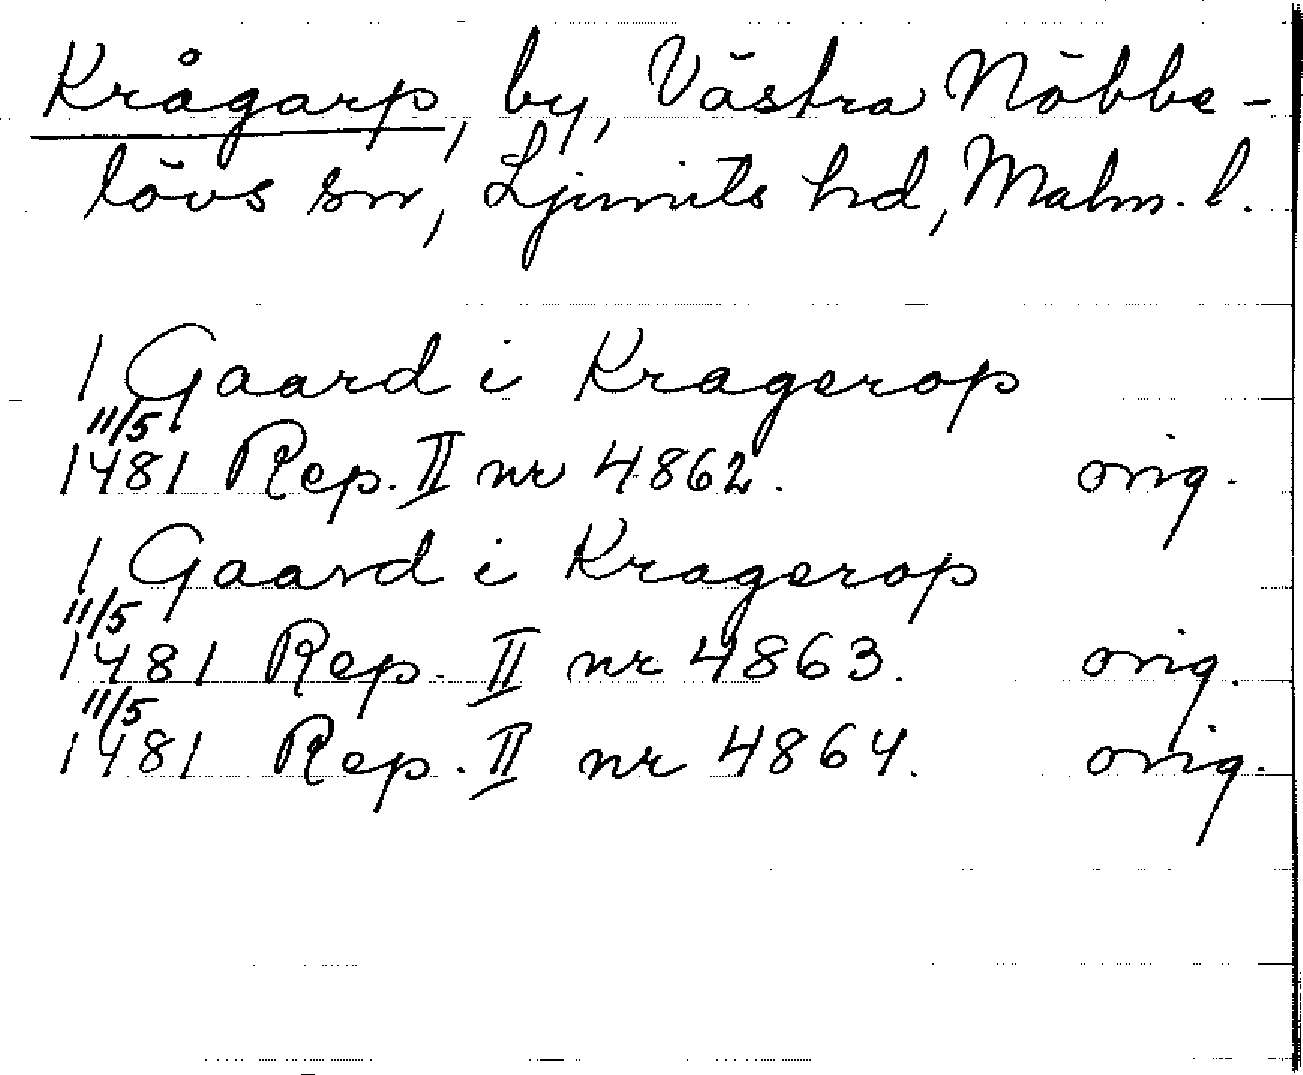 Krågarp, by, Västra Nöbbe-
lövs sn, Ljunits hd, Malm. l.
1 Gaard i Kragerop
11/5
1481 Rep. II nr 4862. orig.
1 Gaard i Kragerop
11/5
1481 Rep. II nr 4863. orig.
11/5
1481 Rep. II nr 4864. orig.